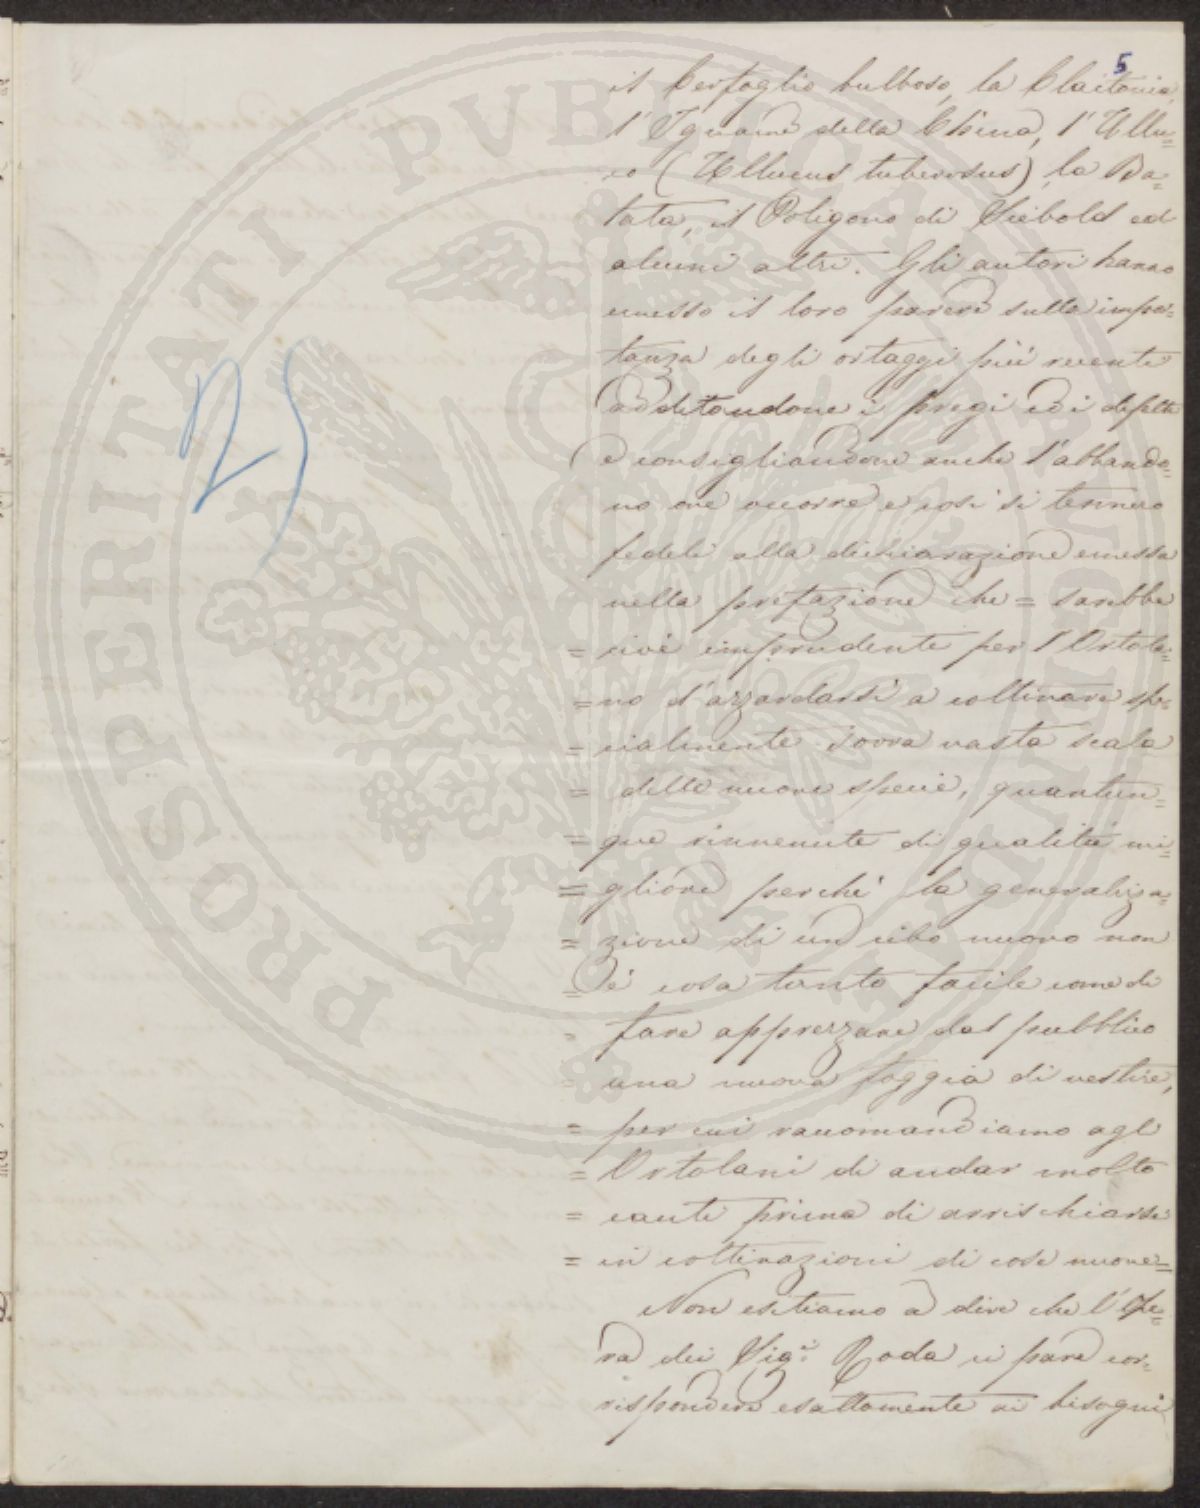 5
il Cerfoglio bulboso, la Claitonia,
l'Igname della China, l'Ullu=
co (Ullucus tuberosus), la Ba=
tata, il Poligono di Siebold ed
alcuni altri. Gli autori hanno
emesso il loro parere sulla impor=
tanza degli ortaggi più recenti
additandone i pregi ed i difetti
e consigliandone anche l'abbando=
no ove occorre e così si tennero
fedeli alla dichiarazione emessa
nella prefazione che = sarebbe
= cioè imprudente per l'Ortola=
= no d'azzardarsi a coltivare spe=
= cialmente sovra vasta scala
= delle nuove specie, quantun=
= que rinvenute di qualità mi=
= gliore perché la generalizza=
= zione di un cibo nuovo non
= è cosa tanto facile come di
= fare apprezzare dal pubblico
= una nuova foggia di vestire,
= per cui raccomandiamo agl
= Ortolani di andar molto
= cauti prima di arrischiarsi
= in coltivazioni di cose nuove=
Non esitiamo a dire che l'Ope=
ra dei Sig.i Roda ci pare cor=
rispondere esattamente ai bisogni
25
PROSPERITATI PUBLICAE